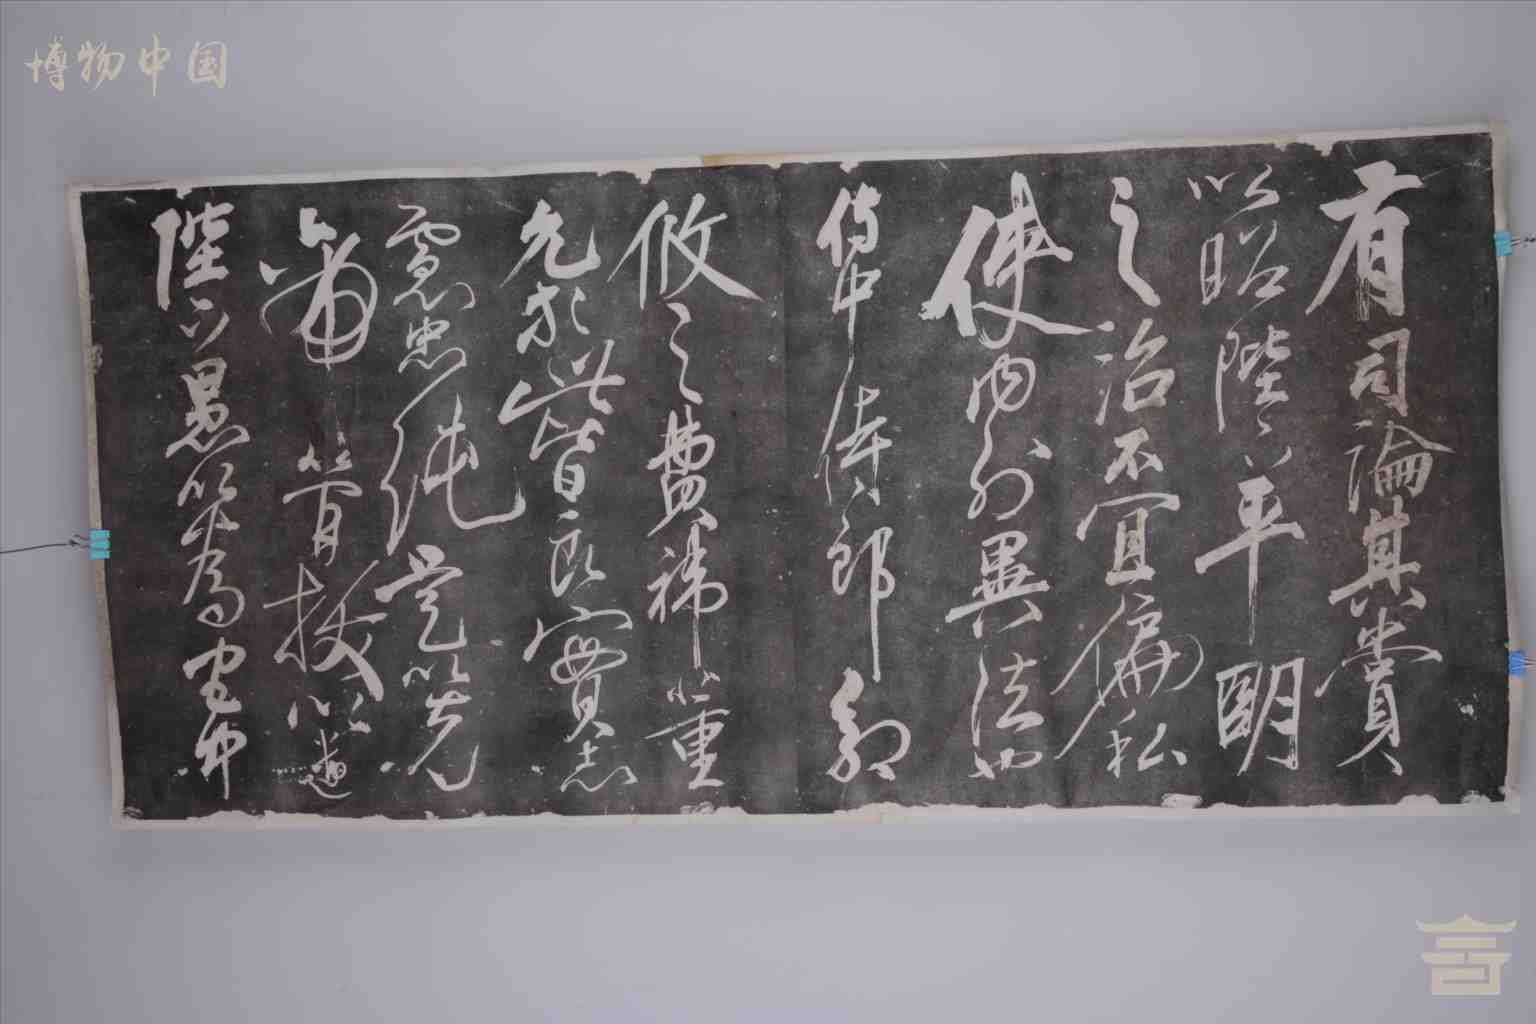 博物中国
有司論其賞
以昭陛下平明
之治不宜偏私
使内外異法也
侍中侍郎郭
攸之費禕董
允於此皆良實志
慮忠純是以先
帝簡拔以遺
陛下愚以為宮中